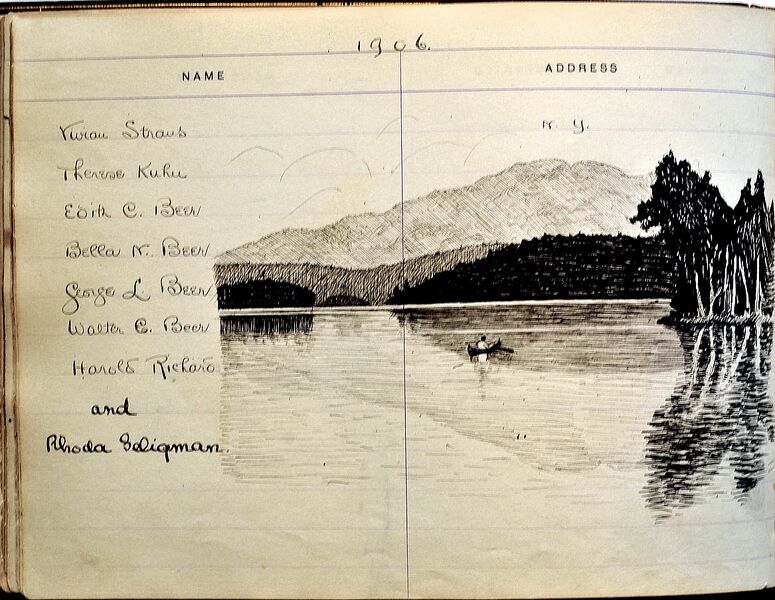 1906.
NAME ADDRESS
Vivian Straus N. Y.
Therese Kuhn
Edith C. Beer
Bella N. Beer
George L. Beer
Walter C. Beer
Harold Richard
and
Rhoda Seligman.